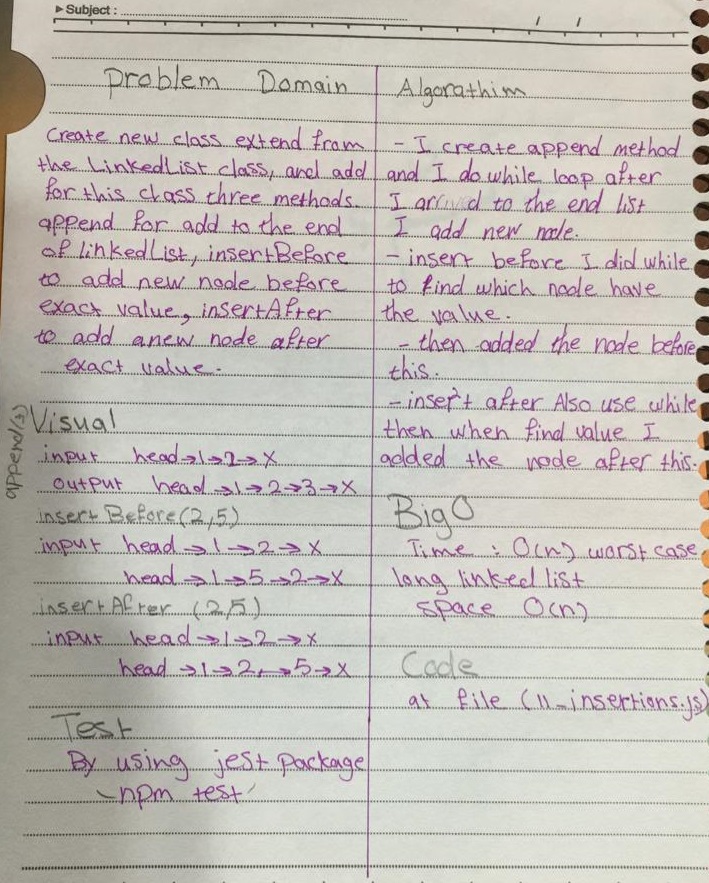 ▸Subject :
Problem Domain
Create new class extend from
the LinkedList class, and add
for this class three methods.
append for add to the end
of linkedList, insertBefore
to add new node before
exact value, insertAfter
to add anew node after
exact value.
append(3)
Visual
input head→1→2→X
output head→1→2→3→X
insertBefore(2,5)
input head→1→2→X
head→1→5→2→X
insertAfter (2,5)
input head→1→2→X
head→1→2→5→X
Test
By using jest package
npm test
Algorathim
- I create append method
and I do while loop after
I arrived to the end list
I add new node.
- insert before I did while
to find which node have
the value.
- then added the node before
this.
- insert after Also use while
then when find value I
added the node after this.
Big O
Time : O(n) worst case
long linked list
space O(n)
Code
at file (11-insertions.js)